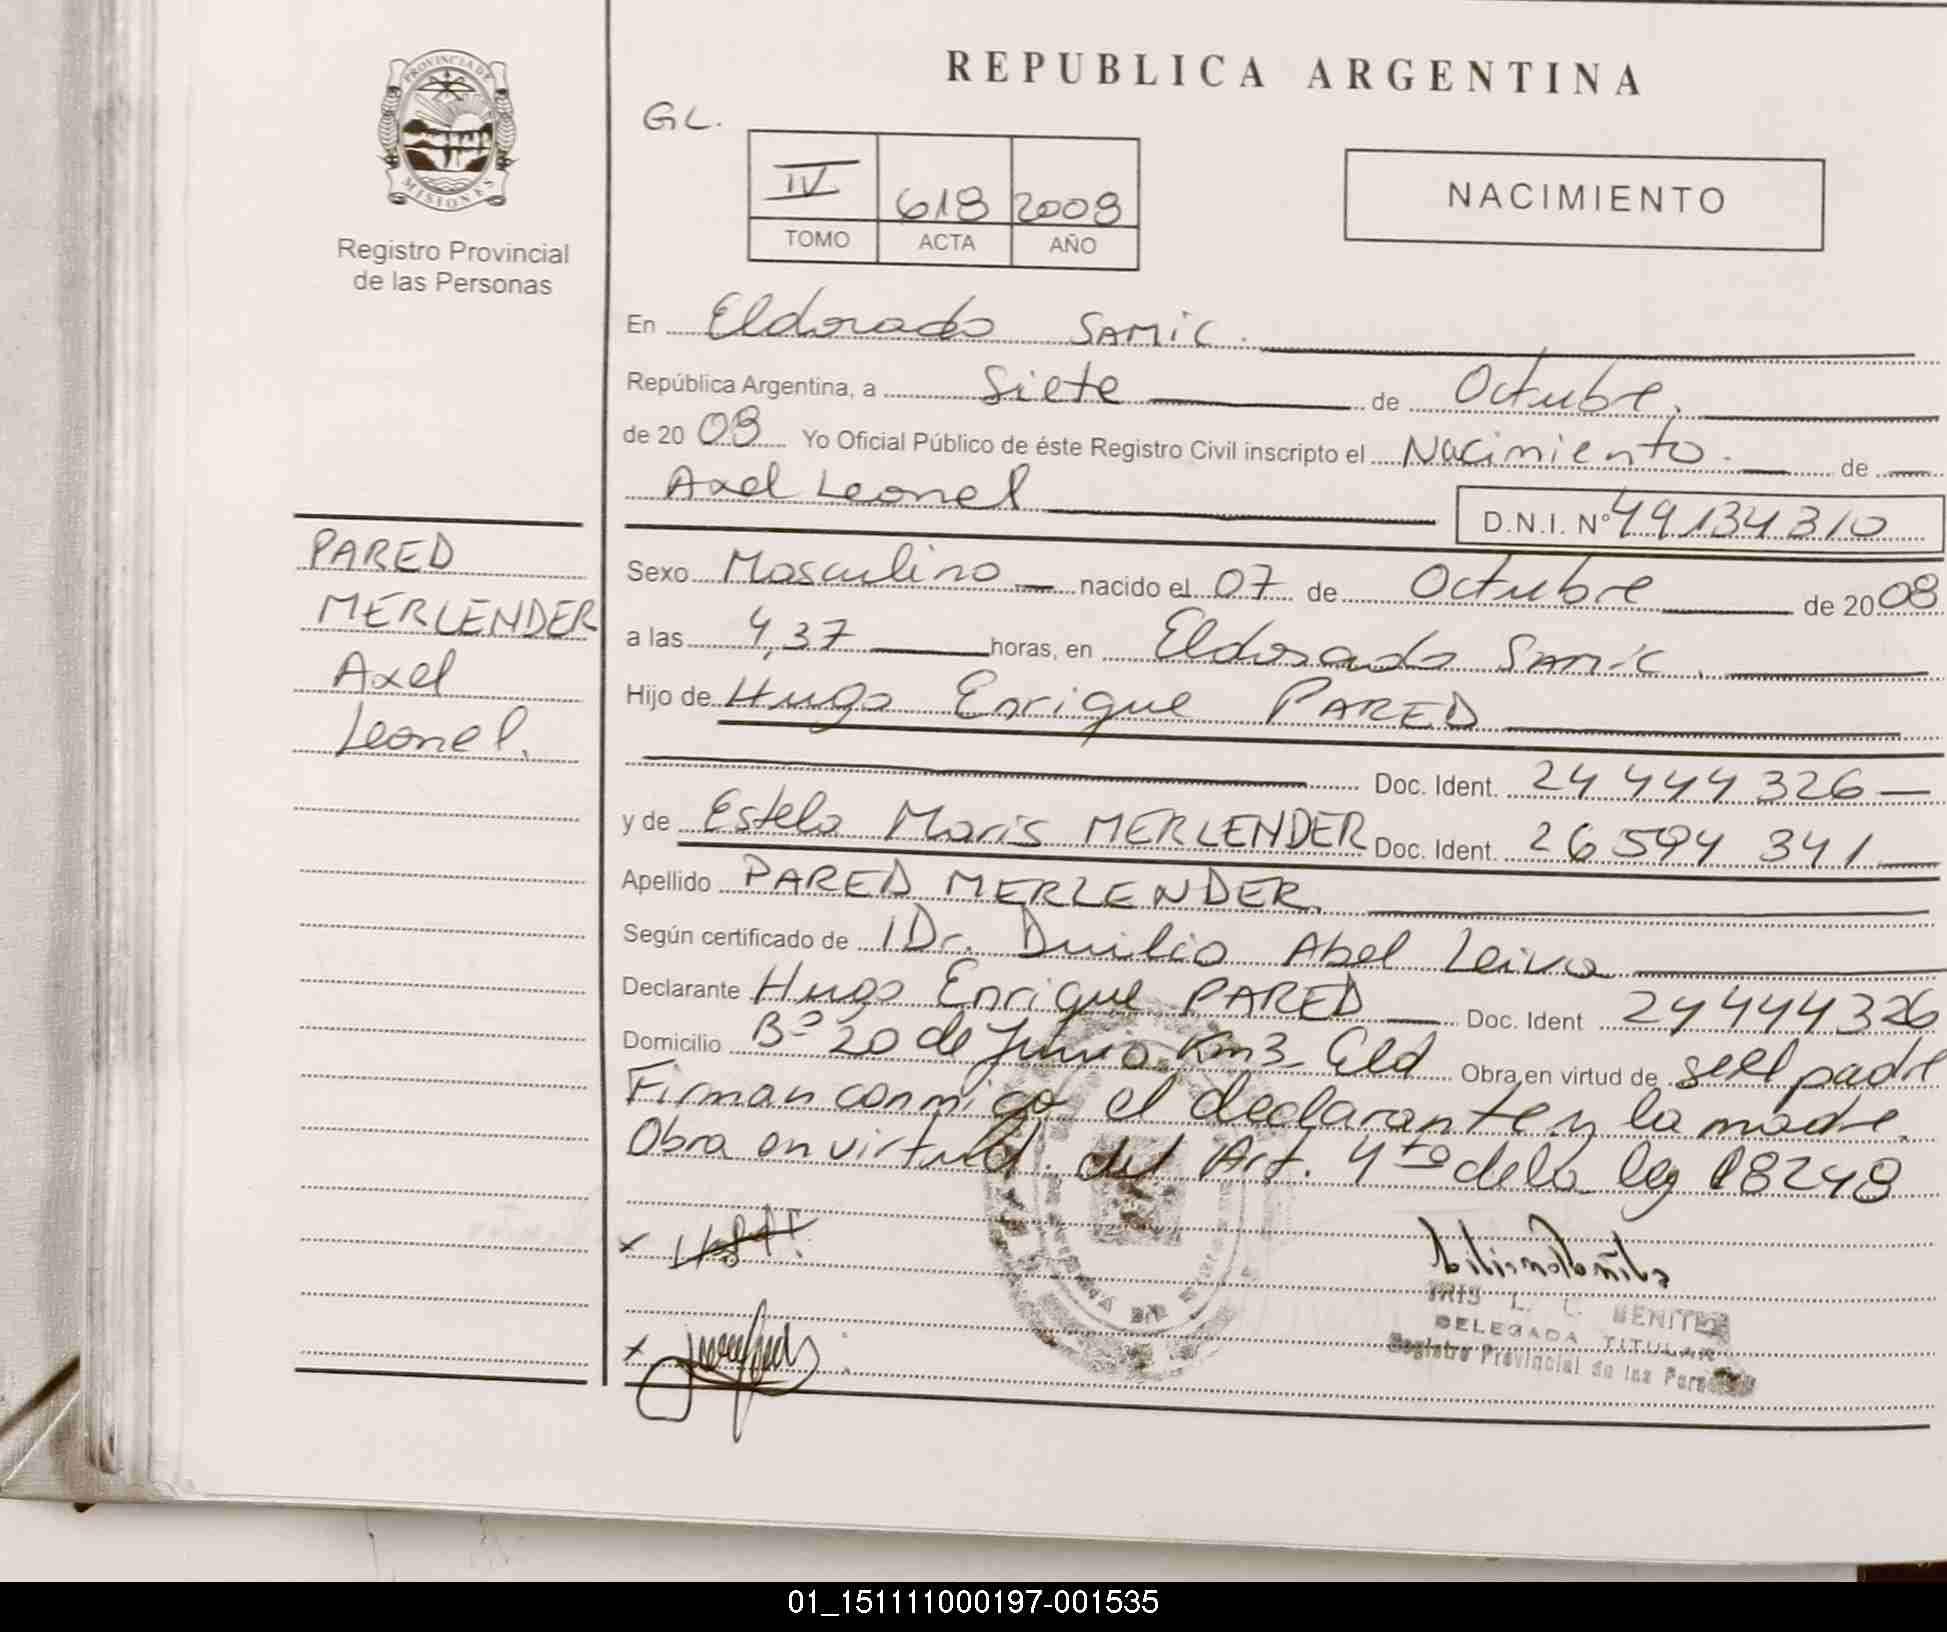 REPUBLICA ARGENTINA
PROVINCIA DE
MISIONES
Registro Provincial
de las Personas
GL.
IV 618 2008
TOMO ACTA AÑO
NACIMIENTO
En Eldorado SAMIC.
República Argentina, a Siete de Octubre.
de 20 08 Yo Oficial Público de éste Registro Civil inscripto el Nacimiento. de
Axel Leonel
D.N.I. Nº 49134310
PARED
MERLENDER
Axel
Leonel.
Sexo Masculino nacido el 07 de Octubre de 20 08
a las 4,37 horas, en Eldorado SAMIC.
Hijo de Hugo Enrique PARED
Doc. Ident. 24 444 326
y de Estela Maris MERLENDER Doc. Ident. 26 594 341
Apellido PARED MERLENDER.
Según certificado de Dr. Duilio Abel Leiva
Declarante Hugo Enrique PARED Doc. Ident 24444326
Domicilio Bº 20 de Junio Km3 Eld Obra en virtud de ser el padre
Firman conmigo el declarante y la madre.
Obra en virtud del Art. 4to de la ley 18248
x
x
L. BENITEZ
DELEGADA TITULAR
Registro Provincial de las
01_151111000197-001535